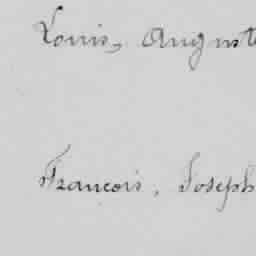 Louis, August
Francois, Joseph